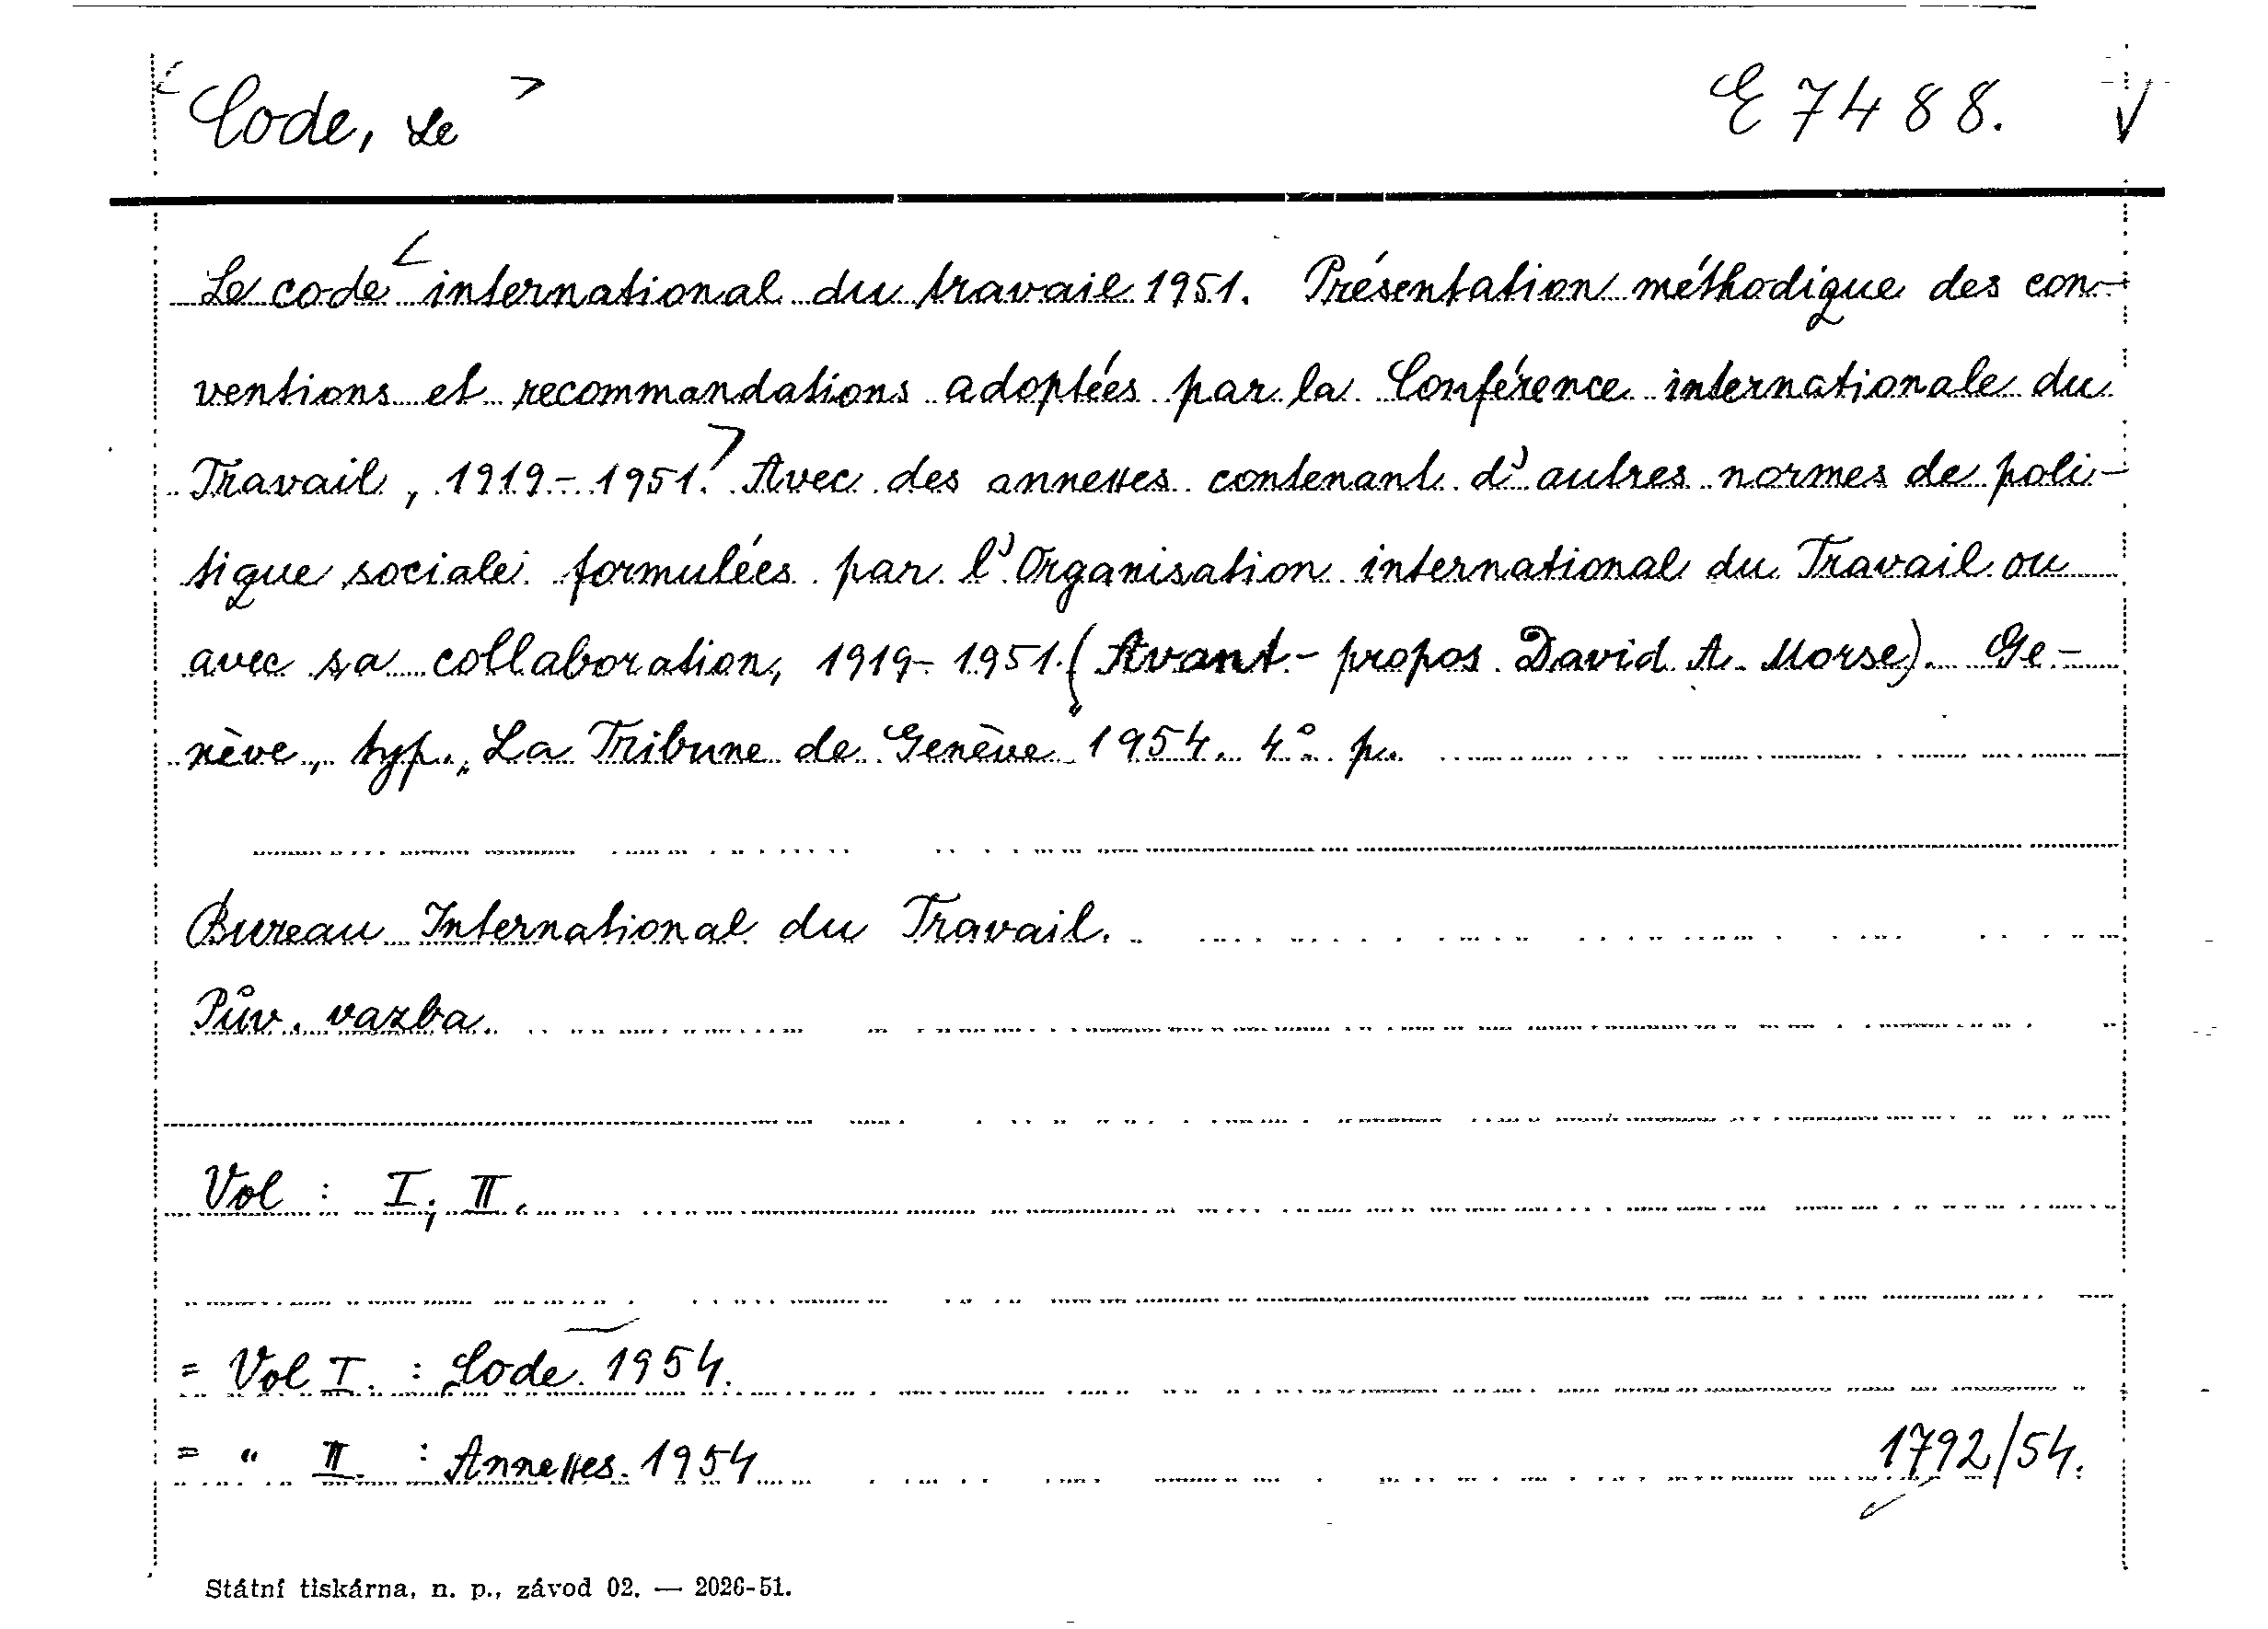 Code, Le E 7488.
Le code international du travail 1951. Présentation méthodique des con-
ventions et recommandations adoptées par la Conférence internationale du
Travail, 1919-1951. Avec des annexes contenant d'autres normes de poli-
tique sociale formulées par l'Organisation international du Travail ou
avec sa collaboration, 1919-1951. (Avant-propos David A. Morse). Ge-
nève, typ. „La Tribune de Genève" 1954. 4° p.
Bureau International du Travail.
Pův. vazba.
Vol : I, II.
= Vol I. : Code. 1954.
= " II. : Annexes. 1954
1792/54.
Státní tiskárna, n. p., závod 02. — 2026-51.